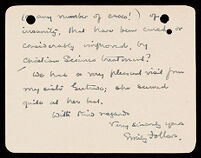 (any number of cases!) of
insanity, that have been cured or
considerably improved, by
Christian Science treatment?
We had a very pleasant visit from
my sister Gertrude; she seemed
quite at her best.
With kind regards
Very sincerely yours
Emily